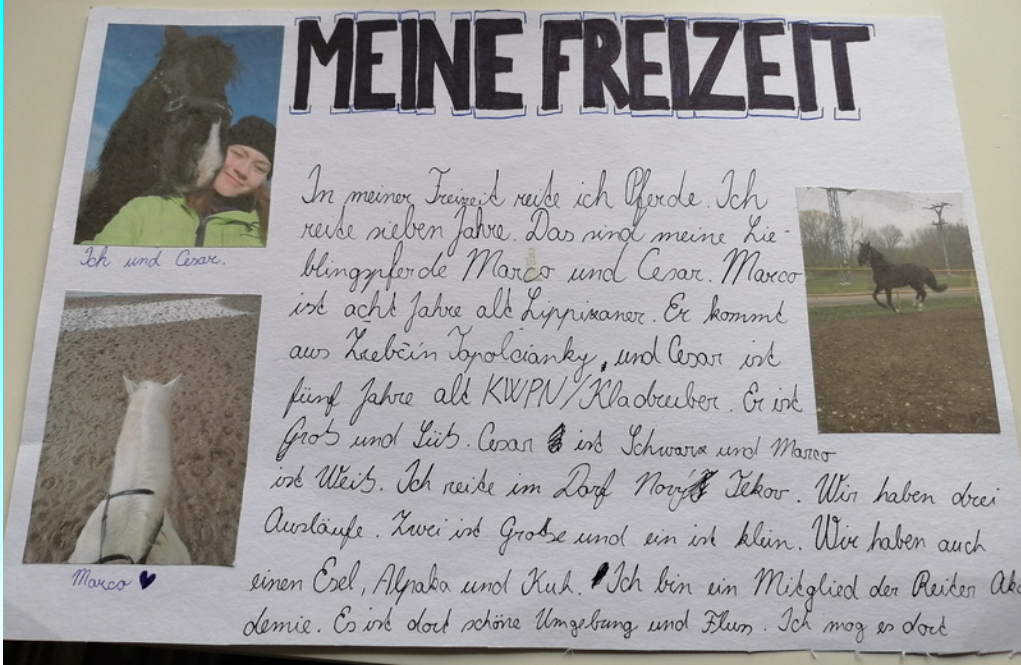 MEINE FREIZEIT
In meiner Freizeit reite ich Pferde. Ich
reite sieben Jahre. Das sind meine Lie-
blingpferde Marco und Cesar. Marco
ist acht Jahre alt Lippizaner. Er kommt
aus Žrebčín Topolcianky, und Cesar ist
fünf Jahre alt KWPN/Kladruber. Er ist
Groß und Süß. Cesar ist Schwarz und Marco
ist Weiß. Ich reite im Dorf Nový Tekov. Wir haben drei
Ausläufe. Zwei ist Große und ein ist klein. Wir haben auch
einen Esel, Alpaka und Kuh. Ich bin ein Mitglied der Reiter Aka
demie. Es ist dort schöne Umgebung und Fluss. Ich mag es dort
Ich und Cesar.
Marco ♥